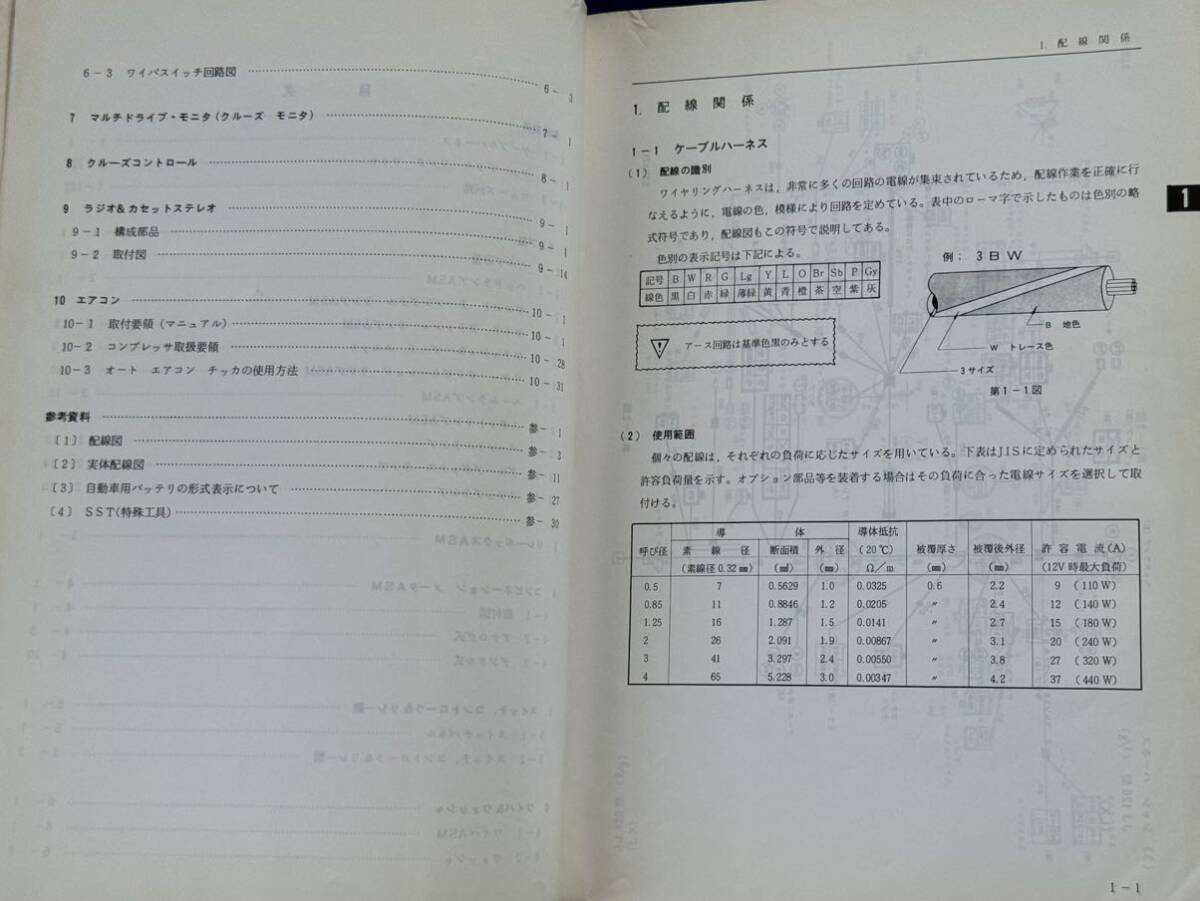 6-3 ワイパスイッチ回路図 6-3
7 マルチドライブ・モニタ(クルーズ モニタ) 7-1
8 クルーズコントロール 8-1
9 ラジオ&カセットステレオ 9-1
9-1 構成部品 9-1
9-2 取付図 9-14
10 エアコン 10-1
10-1 取付要領(マニュアル) 10-1
10-2 コンプレッサ取扱要領 10-28
10-3 オート エアコン チッカの使用方法 10-31
参考資料 参-1
〔1〕 配線図 参-3
〔2〕 実体配線図 参-11
〔3〕 自動車用バッテリの形式表示について 参-27
〔4〕 SST(特殊工具) 参-30
1. 配線関係
1. 配線関係
1-1 ケーブルハーネス
(1) 配線の識別
ワイヤリングハーネスは,非常に多くの回路の電線が集束されているため,配線作業を正確に行
なえるように,電線の色,模様により回路を定めている。表中のローマ字で示したものは色別の略
式符号であり,配線図もこの符号で説明してある。
色別の表示記号は下記による。
記号 B W R G Lg Y L O Br Sb P Gy
線色 黒 白 赤 緑 薄緑 黄 青 橙 茶 空 紫 灰
アース回路は基準色黒のみとする
例; 3BW
B 地色
W トレース色
3サイズ
第1-1図
1
(2) 使用範囲
個々の配線は,それぞれの負荷に応じたサイズを用いている。下表はJISに定められたサイズと
許容負荷量を示す。オプション部品等を装着する場合はその負荷に合った電線サイズを選択して取
付ける。
呼び径 導体 導体抵抗 被覆厚さ 被覆後外径 許容電流(A)
素線径 断面積 外径 (20℃)
(素線径0.32㎜) (㎟) (㎜) Ω/m (㎜) (㎜) (12V時最大負荷)
0.5 7 0.5629 1.0 0.0325 0.6 2.2 9 (110W)
0.85 11 0.8846 1.2 0.0205 〃 2.4 12 (140W)
1.25 16 1.287 1.5 0.0141 〃 2.7 15 (180W)
2 26 2.091 1.9 0.00867 〃 3.1 20 (240W)
3 41 3.297 2.4 0.00550 〃 3.8 27 (320W)
4 65 5.228 3.0 0.00347 〃 4.2 37 (440W)
1-1